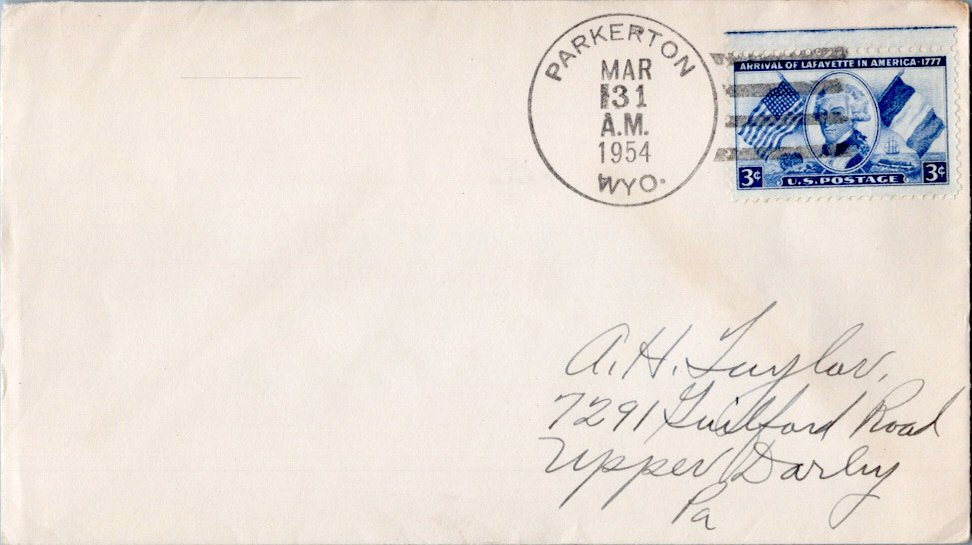 PARKERTON
MAR
31
A.M.
1954
WYO.
ARRIVAL OF LAFAYETTE IN AMERICA-1777
3¢ U.S. POSTAGE 3¢
A. H. Taylor,
7291 Guilford Road
Upper Darby
Pa